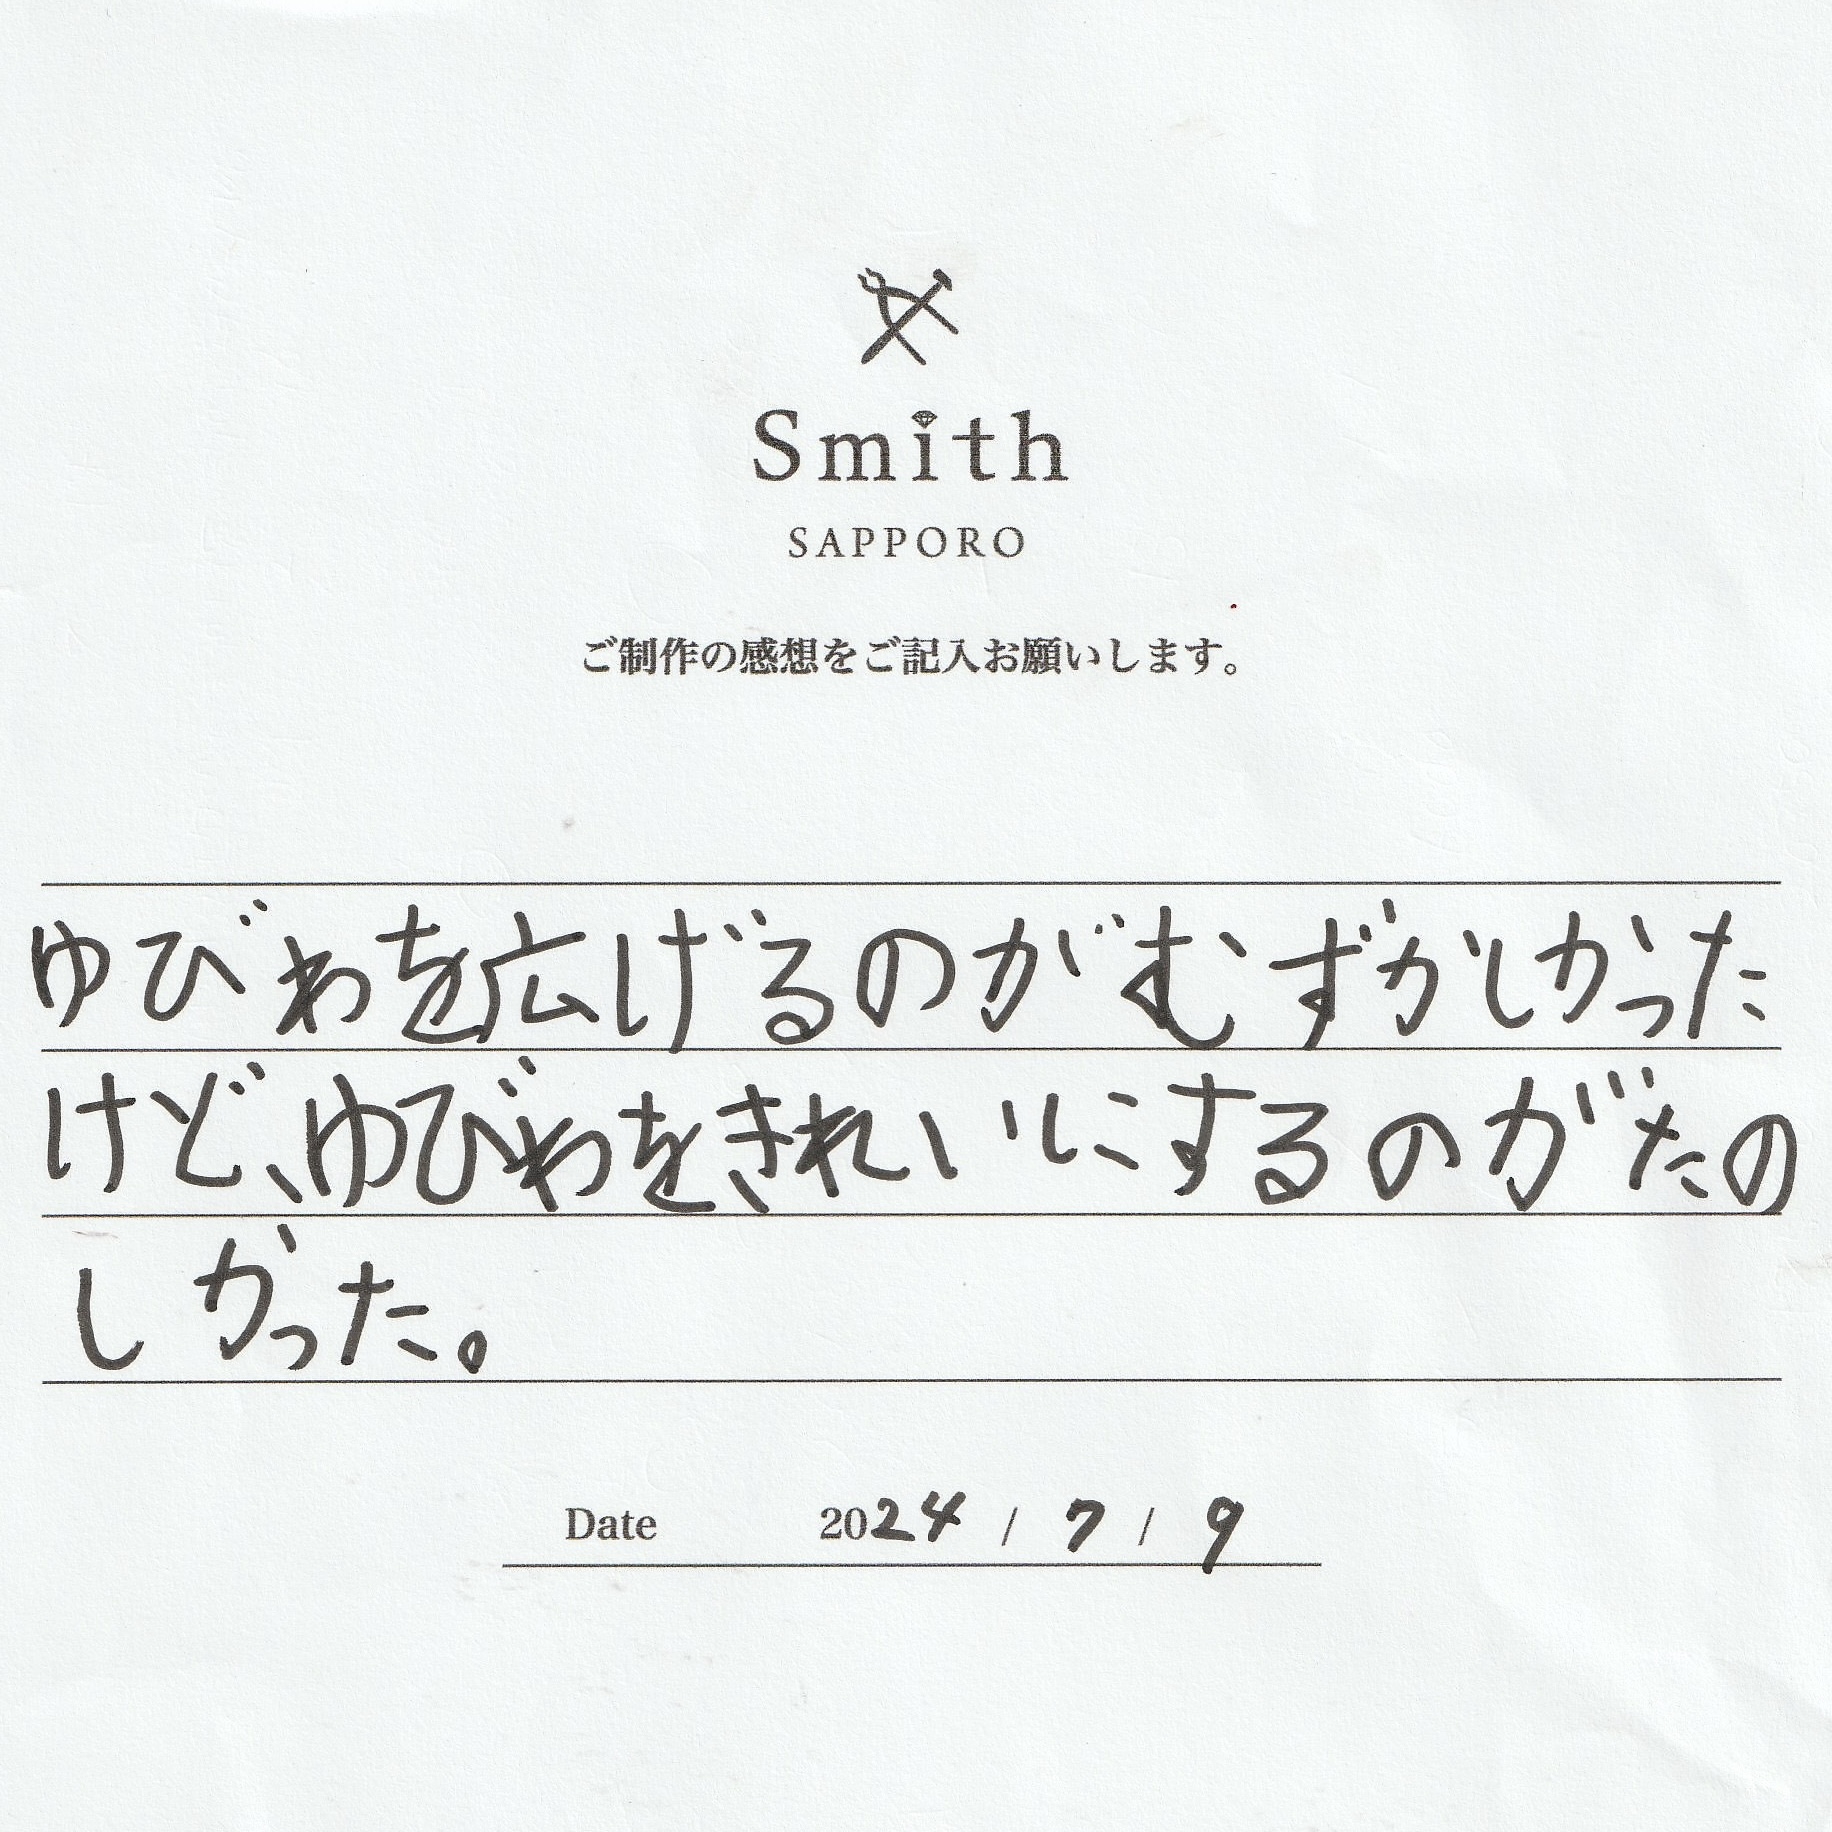 Smith
SAPPORO
ご制作の感想をご記入お願いします。
ゆびわを広げるのがむずかしかった
けど、ゆびわをきれいにするのがたの
しかった。
Date 2024 / 7 / 9